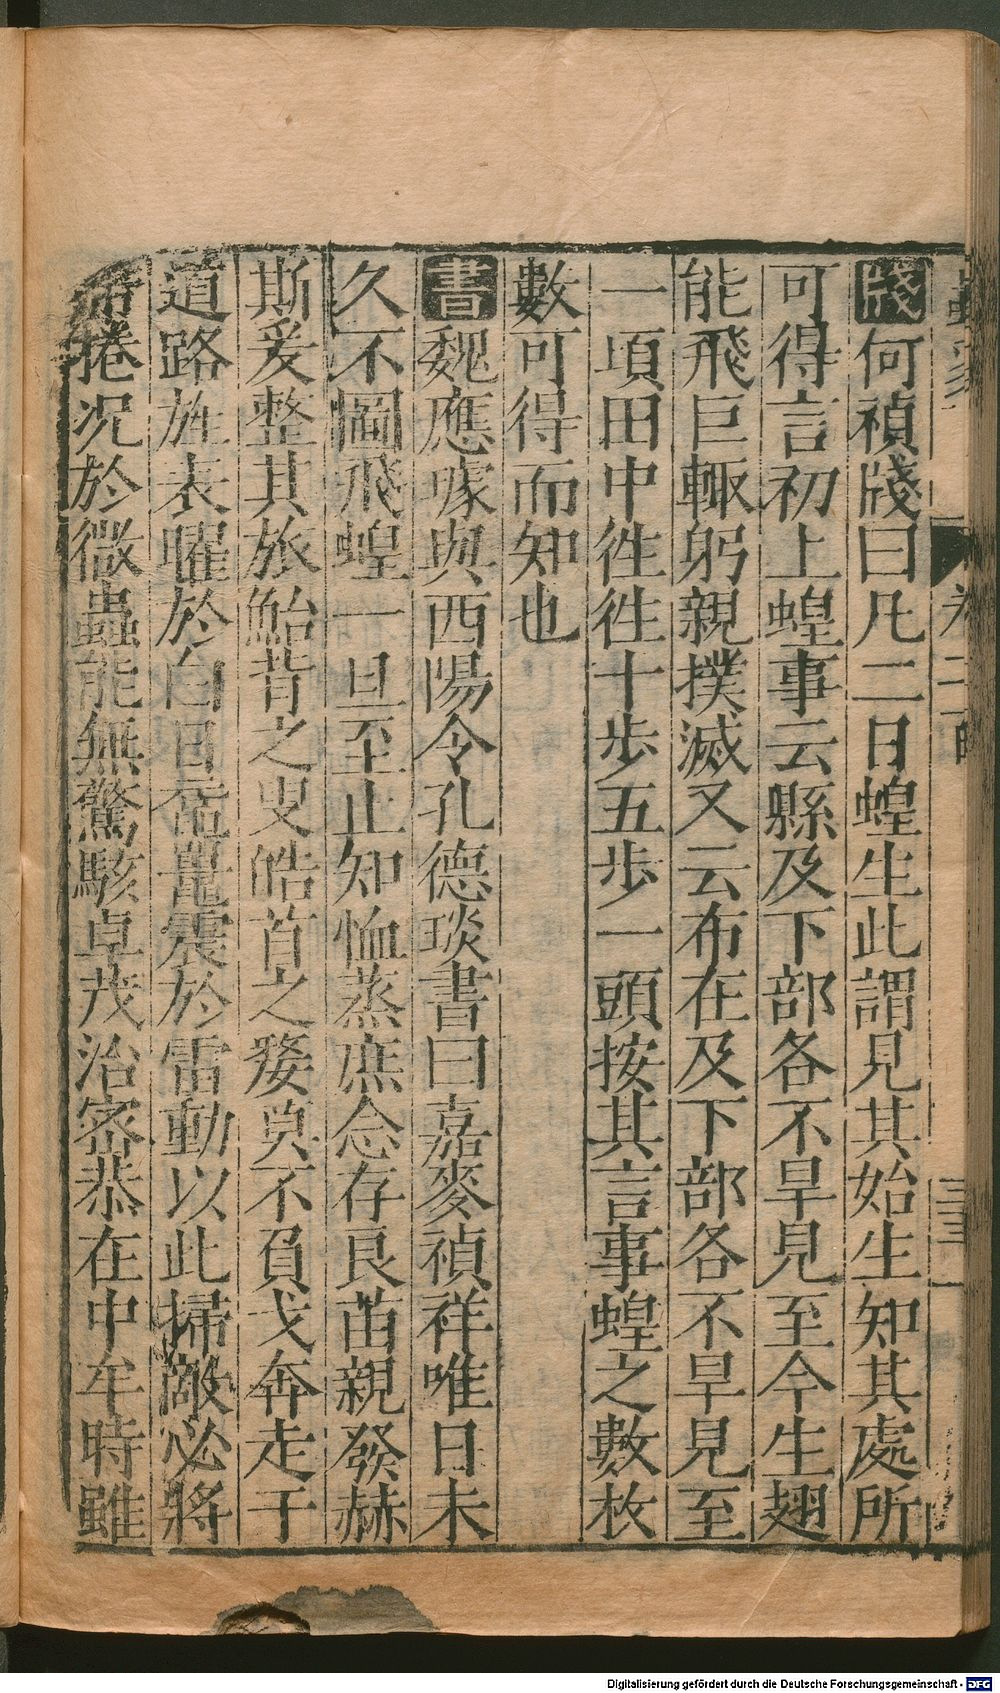 牋何禎牋曰凡二日蝗生此謂見其始生知其處所
可得言初上蝗事云縣及下部各不旱見至今生翅
能飛巨輙躬親撲滅又云布在及下部各不旱見至
一頃田中徃徃十歩五歩一頭按其言事蝗之數枚
數可得而知也
書魏應璩與西陽令孔德琰書曰嘉麥禎祥唯日未
久不圖飛蝗一旦至止知恤蒸庶念存良苗親發赫
斯爰整其旅鮐背之叟皓首之婺莫不負戈奔走于
道路旌表曜於白日黿鼉震於雷動以此掃敵必將
席捲况於微蟲能無驚駭卓茂治密恭在中牟時雖
Digitalisierung gefördert durch die Deutsche Forschungsgemeinschaft - DFG